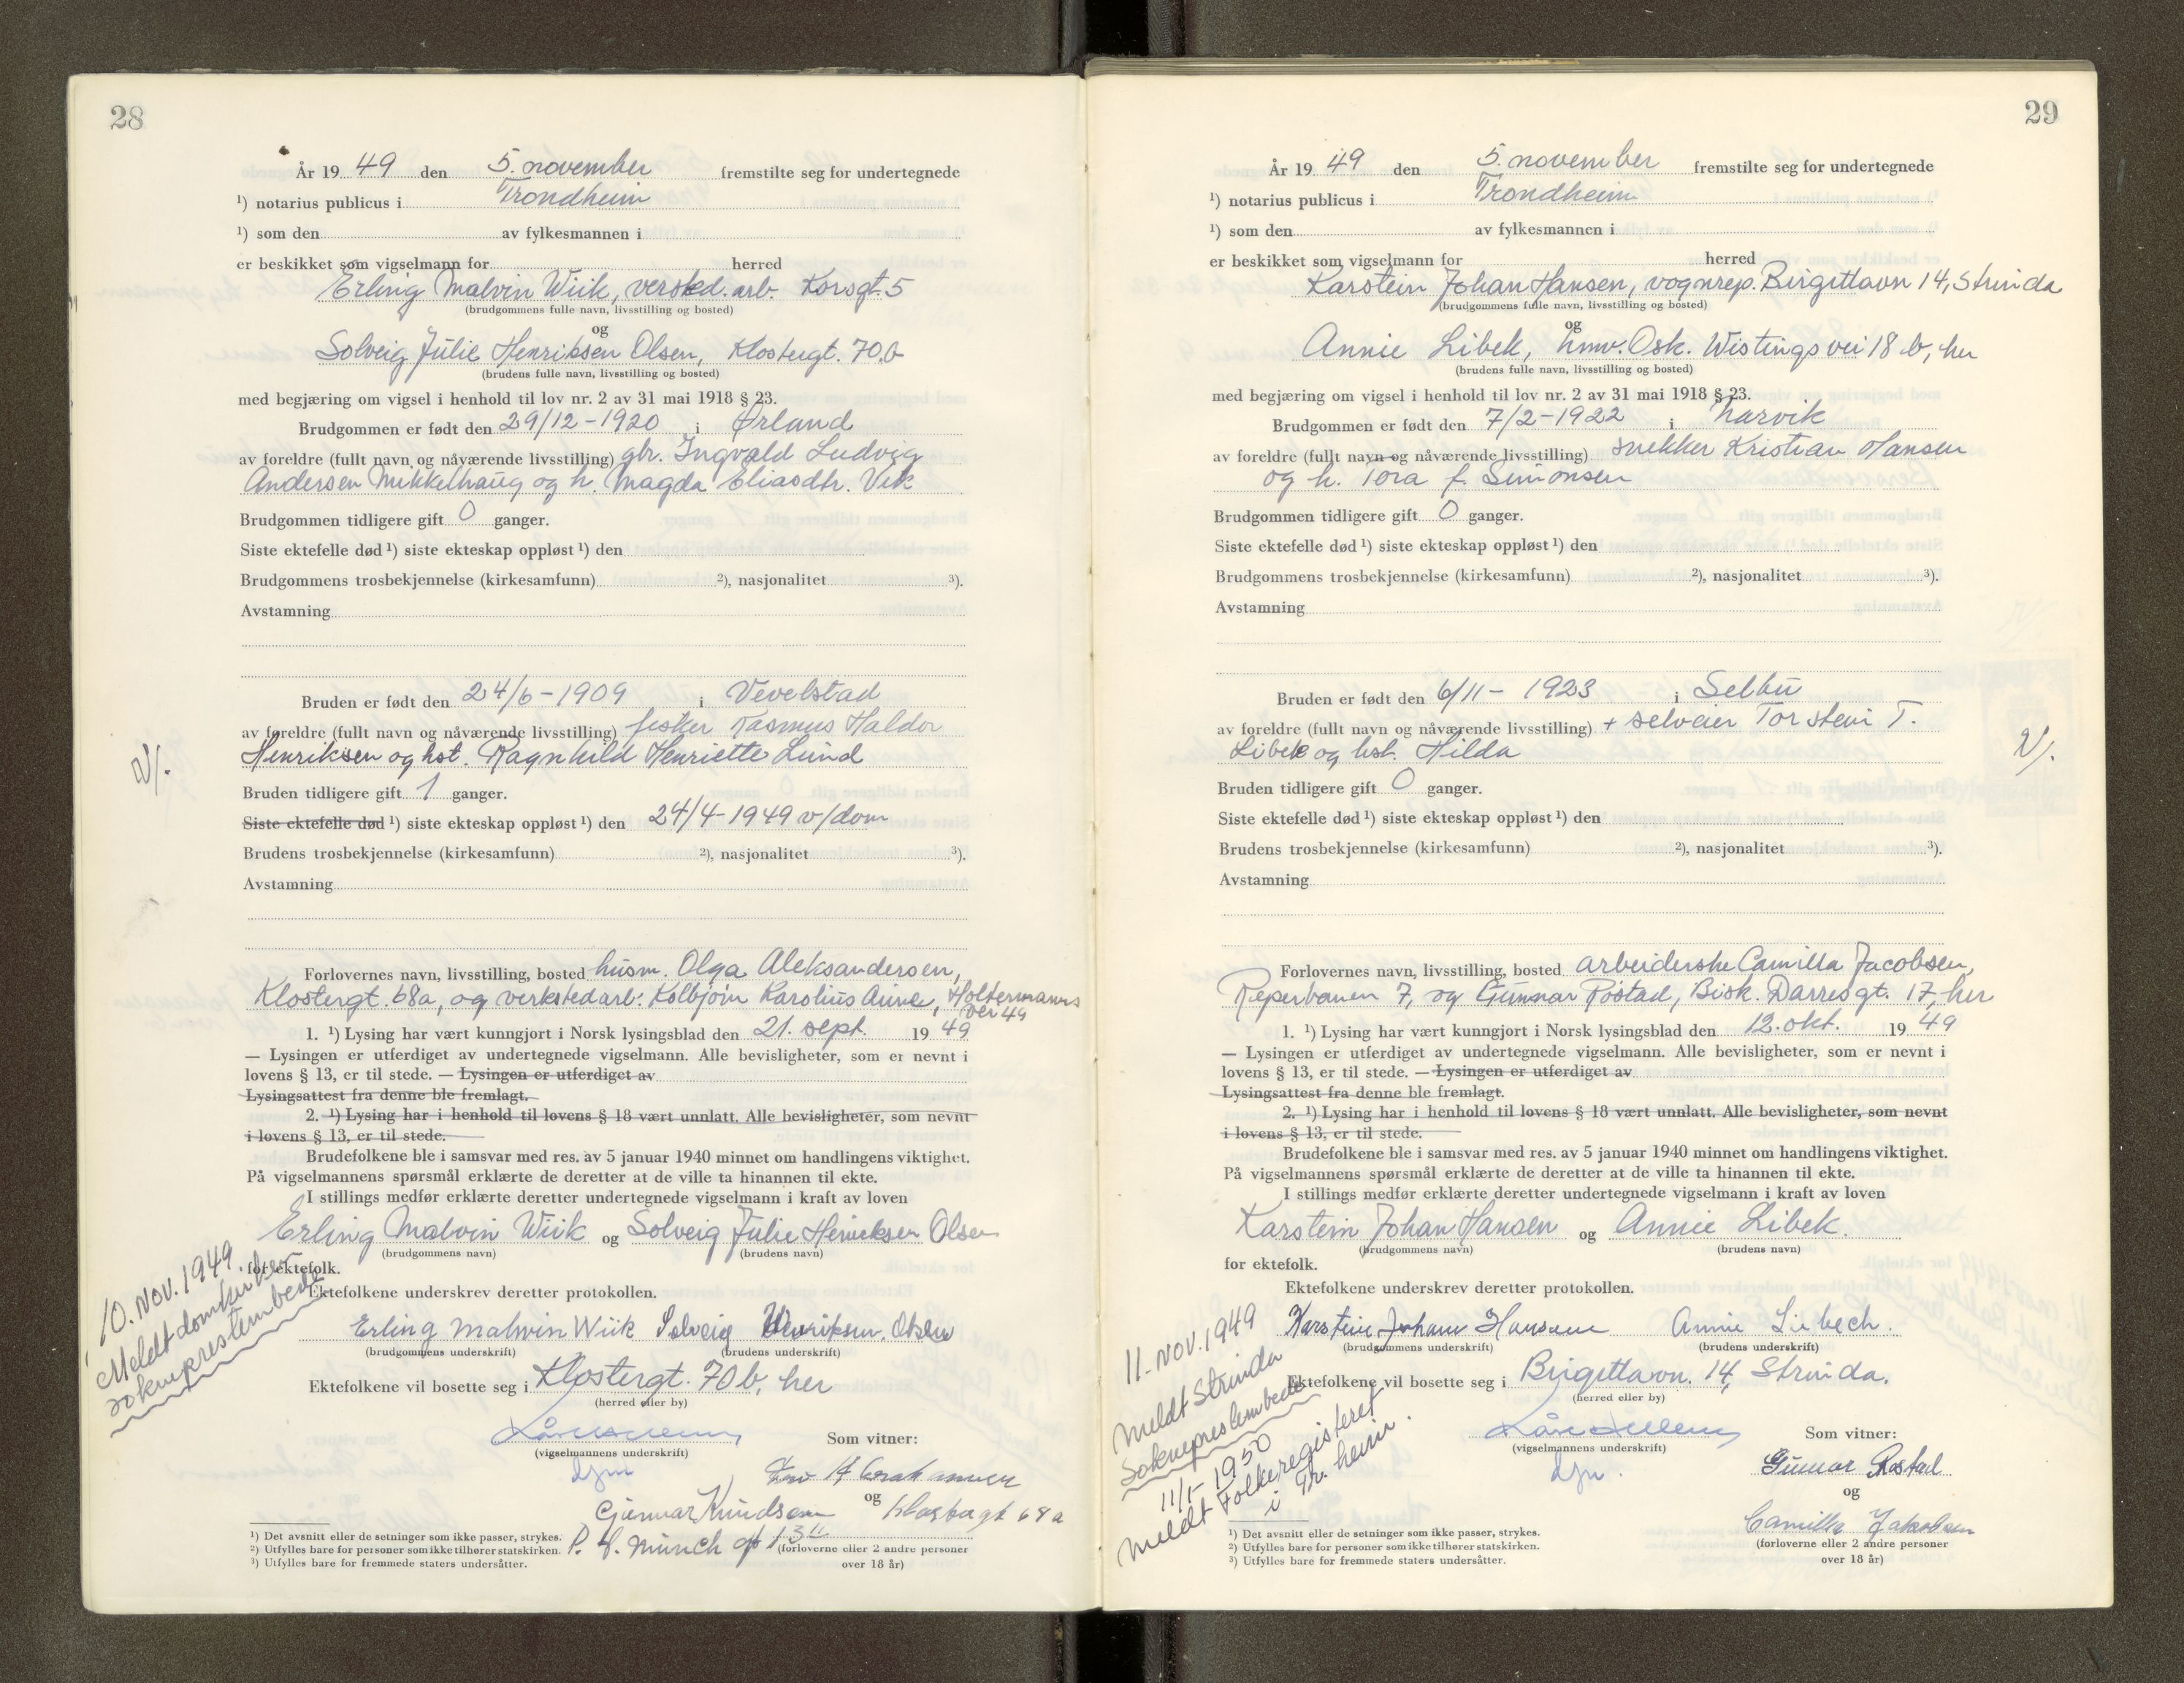 28
År 19 49 den 5. november fremstilte seg for undertegnede
¹) notarius publicus i Trondheim
¹) som den av fylkesmannen i
er beskikket som vigselmann for herred
Erling Malvin Wiik, versted. arb. Korsgt. 5
(brudgommens fulle navn, livsstilling og bosted)
og
Solveig Julie Henriksen Olsen, Klostergt. 70b
(brudens fulle navn, livsstilling og bosted)
med begjæring om vigsel i henhold til lov nr. 2 av 31 mai 1918 § 23.
Brudgommen er født den 29/12-1920 i Ørland
av foreldre (fullt navn og nåværende livsstilling) gbr. Ingvald Ludvig
Andersen Mikkelhaug og h. Magda Eliasdtr. Vik
Brudgommen tidligere gift 0 ganger.
Siste ektefelle død ¹) siste ekteskap oppløst ¹) den
Brudgommens trosbekjennelse (kirkesamfunn) ²), nasjonalitet ³).
Avstamning
Bruden er født den 24/6-1909 i Vevelstad
av foreldre (fullt navn og nåværende livsstilling) fisker Rasmus Haldor
Henriksen og hst. Ragnhild Henriette Lund
Bruden tidligere gift 1 ganger.
Siste ektefelle død ¹) siste ekteskap oppløst ¹) den 24/4-1949 v/dom
Brudens trosbekjennelse (kirkesamfunn) ²), nasjonalitet ³).
Avstamning
Forlovernes navn, livsstilling, bosted husm. Olga Aleksandersen,
Klostergt. 68a, og verkstedarb: Kolbjørn Karolius Aune, Holtermanns
vei 49
1. ¹) Lysing har vært kunngjort i Norsk lysingsblad den 21. sept. 19 49
— Lysingen er utferdiget av undertegnede vigselmann. Alle bevisligheter, som er nevnt i
lovens § 13, er til stede. — Lysingen er utferdiget av
Lysingsattest fra denne ble fremlagt.
2. ¹) Lysing har i henhold til lovens § 18 vært unnlatt. Alle bevisligheter, som nevnt
i lovens § 13, er til stede.
Brudefolkene ble i samsvar med res. av 5 januar 1940 minnet om handlingens viktighet.
På vigselmannens spørsmål erklærte de deretter at de ville ta hinannen til ekte.
I stillings medfør erklærte deretter undertegnede vigselmann i kraft av loven
Erling Malvin Wiik og Solveig Julie Henriksen Olsen
(brudgommens navn) (brudens navn)
for ektefolk.
Ektefolkene underskrev deretter protokollen.
10. NOV. 1949.
Meldt domkirken
sokneprestembede
Erling Malvin Wiik Solveig Henriksen Olsen
(brudgommens underskrift) (brudens underskrift)
Ektefolkene vil bosette seg i Klostergt. 70b, her
(herred eller by)
(vigselmannens underskrift) Som vitner:
Gunnar Knudsen og Klostergt 68a
P. A. Munch gt 13
¹) Det avsnitt eller de setninger som ikke passer, strykes.
²) Utfylles bare for personer som ikke tilhører statskirken.
³) Utfylles bare for fremmede staters undersåtter.
(forloverne eller 2 andre personer
over 18 år)
29
År 19 49 den 5. november fremstilte seg for undertegnede
¹) notarius publicus i Trondheim
¹) som den av fylkesmannen i
er beskikket som vigselmann for herred
Karstein Johan Hansen, vognrep. Birgittavn 14, Strinda
(brudgommens fulle navn, livsstilling og bosted)
og
Annie Libek, hmv. Osk. Wistings vei 18 b, her
(brudens fulle navn, livsstilling og bosted)
med begjæring om vigsel i henhold til lov nr. 2 av 31 mai 1918 § 23.
Brudgommen er født den 7/2-1922 i Narvik
av foreldre (fullt navn og nåværende livsstilling) snekker Kristian Hansen
og h. Tora f. Simonsen
Brudgommen tidligere gift 0 ganger.
Siste ektefelle død ¹) siste ekteskap oppløst ¹) den
Brudgommens trosbekjennelse (kirkesamfunn) ²), nasjonalitet ³).
Avstamning
Bruden er født den 6/11-1923 i Selbu
av foreldre (fullt navn og nåværende livsstilling) + selveier Torstein T.
Libek og hst. Hilda
Bruden tidligere gift 0 ganger.
Siste ektefelle død ¹) siste ekteskap oppløst ¹) den
Brudens trosbekjennelse (kirkesamfunn) ²), nasjonalitet ³).
Avstamning
Forlovernes navn, livsstilling, bosted arbeiderske Camilla Jacobsen,
Reperbanen 7, og Gunnar Rostad, Bisk. Darresgt. 17, her
1. ¹) Lysing har vært kunngjort i Norsk lysingsblad den 12. okt. 19 49
— Lysingen er utferdiget av undertegnede vigselmann. Alle bevisligheter, som er nevnt i
lovens § 13, er til stede. — Lysingen er utferdiget av
Lysingsattest fra denne ble fremlagt.
2. ¹) Lysing har i henhold til lovens § 18 vært unnlatt. Alle bevisligheter, som nevnt
i lovens § 13, er til stede.
Brudefolkene ble i samsvar med res. av 5 januar 1940 minnet om handlingens viktighet.
På vigselmannens spørsmål erklærte de deretter at de ville ta hinannen til ekte.
I stillings medfør erklærte deretter undertegnede vigselmann i kraft av loven
Karstein Johan Hansen og Annie Libek.
(brudgommens navn) (brudens navn)
for ektefolk.
Ektefolkene underskrev deretter protokollen.
Karstein Johan Hansen Annie Liebech.
(brudgommens underskrift) (brudens underskrift)
11. NOV. 1949
Meldt Strinda
Sokneprestembede
11/1-1950
Meldt Folkeregisteret
i Tr.heim.
Ektefolkene vil bosette seg i Birgittavn. 14, Strinda.
(herred eller by)
(vigselmannens underskrift) Som vitner:
Gunnar Rostad
og
Camilla Jakobsen
¹) Det avsnitt eller de setninger som ikke passer, strykes.
²) Utfylles bare for personer som ikke tilhører statskirken.
³) Utfylles bare for fremmede staters undersåtter.
(forloverne eller 2 andre personer
over 18 år)